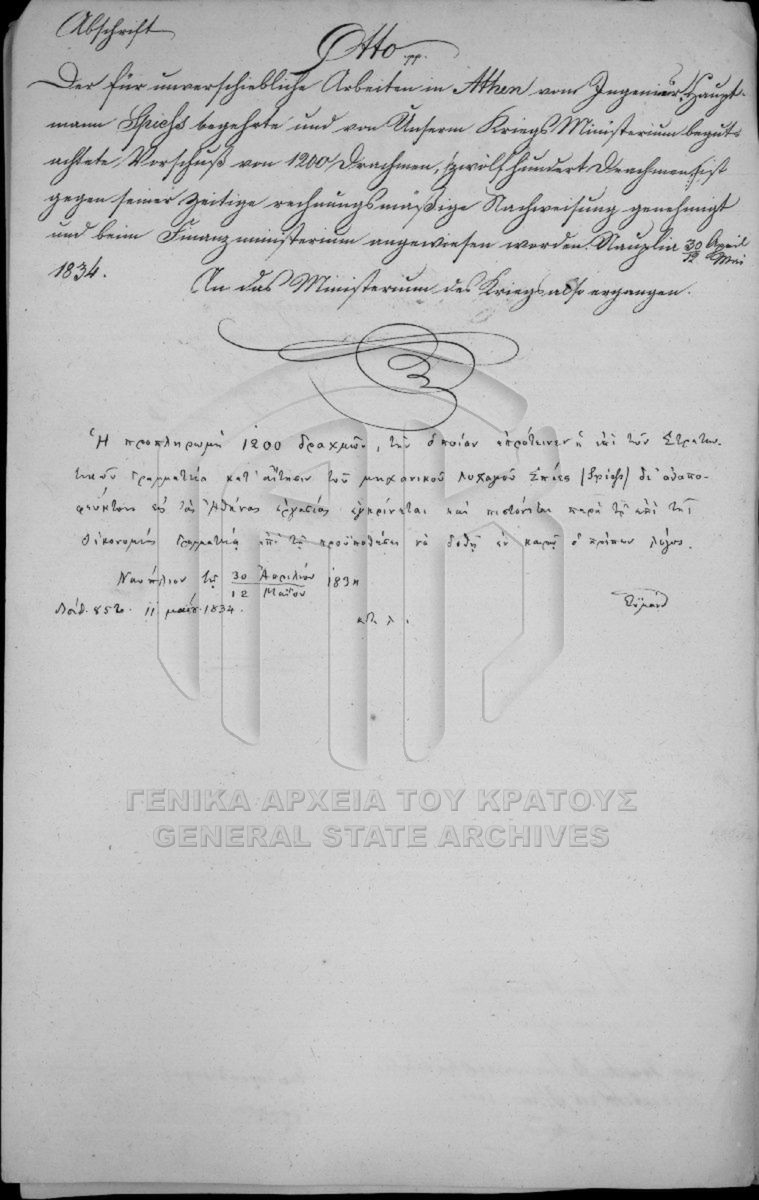 Abschrift
Otto pp.
Der für unverschiebliche Arbeiten in Athen vom Ingenieur, Haupt-
mann Spiess begehrte und von Unserm KriegsMinisterium begut-
achtete Vorschuß von 1200 Drachmen, (zwölf hundert Drachmen) ist
gegen seiner Zeitige rechnungsmäßige Nachweisung genehmigt
und beim Finanzministerium angewiesen worden. Nauplia 30 April
12 Mai
1834.
An das Ministerium des Kriegs also ergangen.
Ἡ προπληρωμὴ 1200 δραχμῶν, τὴν ὁποίαν ἐπρότεινεν ἡ ἐπὶ τῶν Στρατιω-
τικῶν Γραμματεία κατ' αἴτησιν τοῦ μηχανικοῦ λοχαγοῦ Σπιές (Spiess) δι' ἀναπο-
φεύκτους εἰς τὰς Ἀθήνας ἐργασίας ἐγκρίνεται καὶ πιστόνεται παρὰ τῇ ἐπὶ τῆς
Οἰκονομίας Γραμματείᾳ ἐπὶ τῇ προϋποθέσει νὰ δοθῇ ἐν καιρῷ ὁ πρέπων λόγος.
Ναυπλίον τῇ 30 Ἀπριλίου 1834
12 Μαΐου
11 μαΐου 1834.
κτλ.
ΓΕΝΙΚΑ ΑΡΧΕΙΑ ΤΟΥ ΚΡΑΤΟΥΣ
GENERAL STATE ARCHIVES